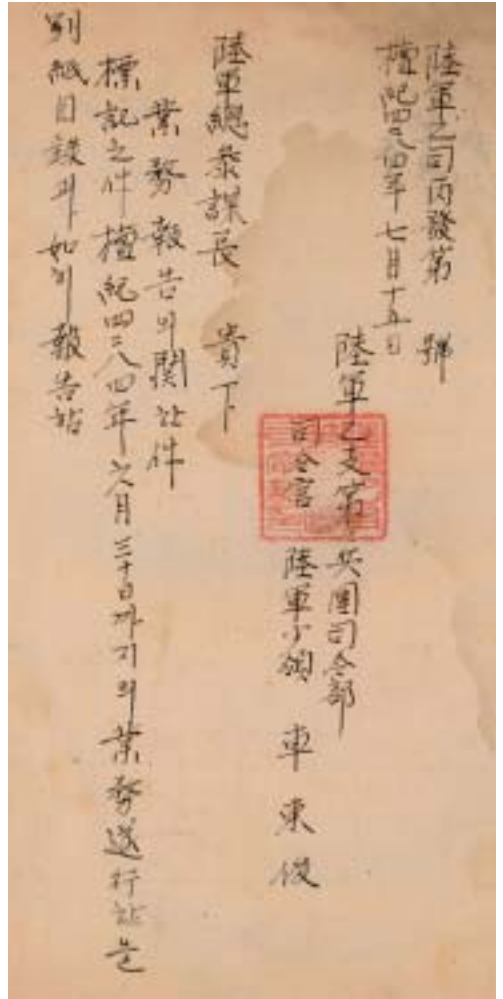 陸軍乙司丙發第 號
檀紀四二八四年七月十五日
陸軍乙支第 兵團司令部
司令官 陸軍少領 車東俊
陸軍總參謀長 貴下
業務報告의關한件
標記之件檀紀四二八四年六月三十日까지의業務遂行한 것을
別紙目錄과如히報告함